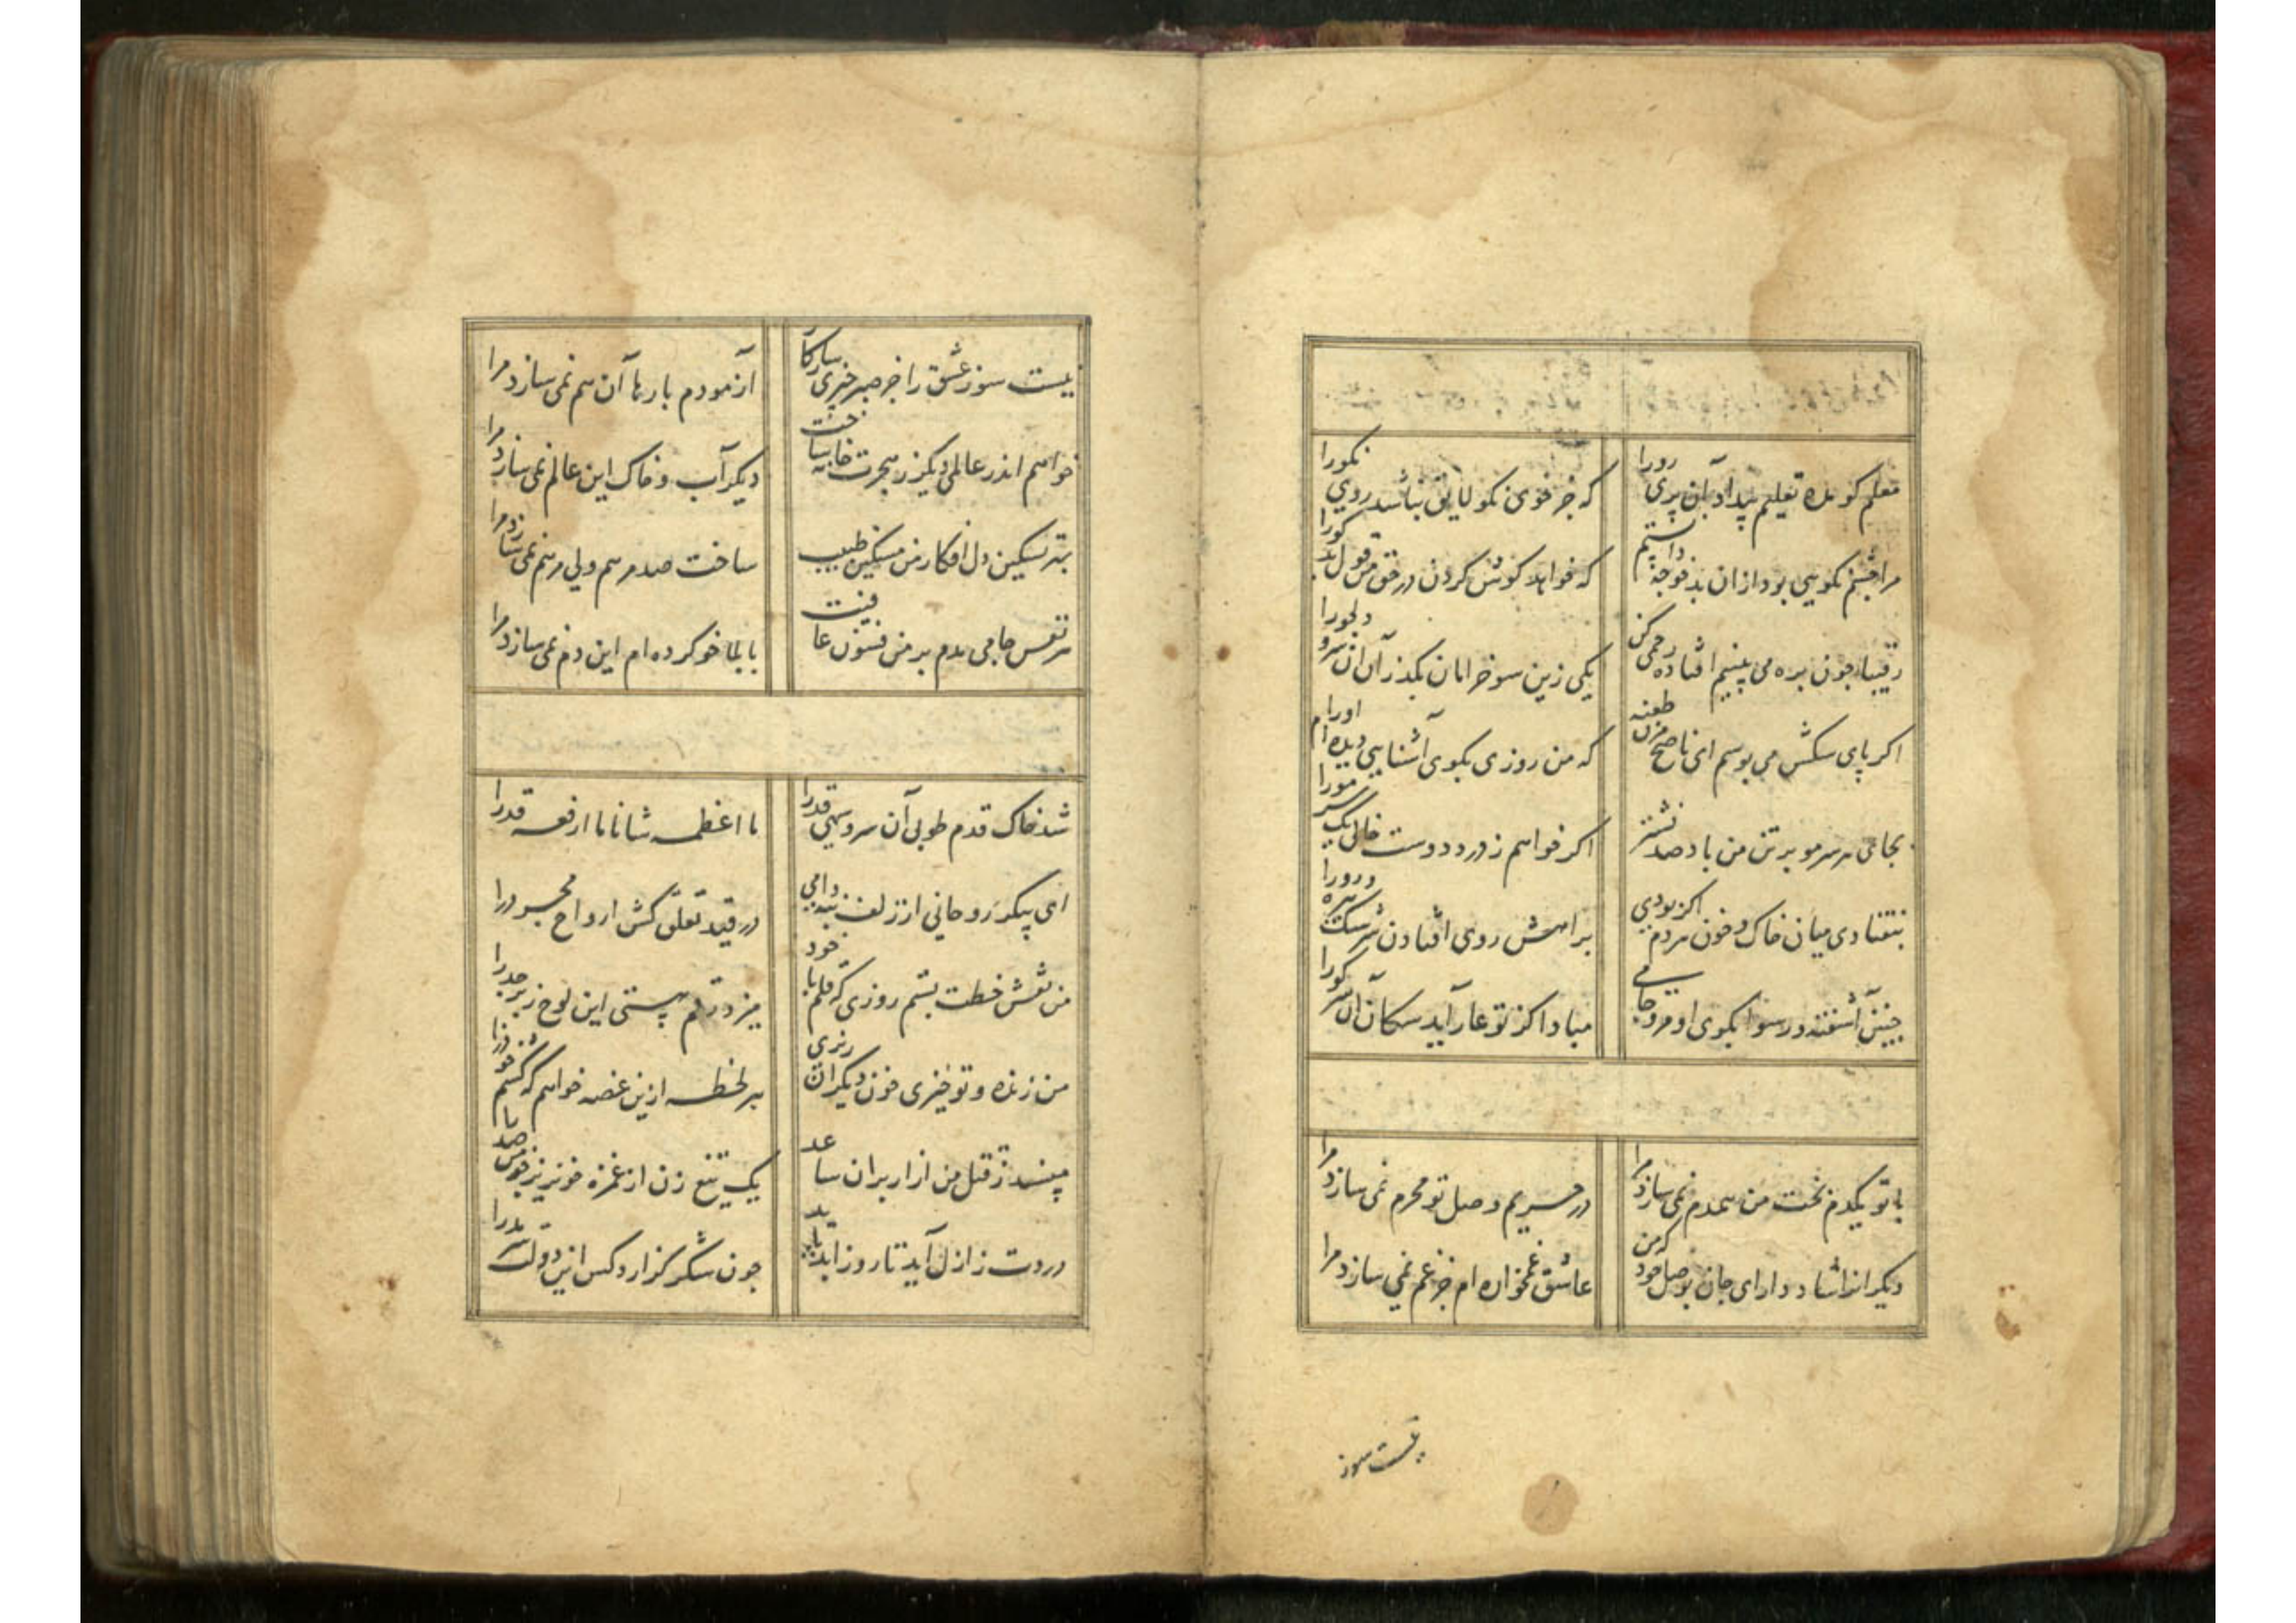 معلم کو مده تعلیم بیداد آن پری رو را
که جز خوی نکو لایق نباشد روی نکو را
مرا چشم نکویی بود ازان بدخو چه دانستم
که خواهد گوش کردن در حق من قول بدکو را
رقیبا چون بره می بینیم افتاده رحمی کن
یکی زین سو خرامان بگذر آن سرو دلجو را
اکر پای سکش می بوسم ای ناصح مزن طعنه
که من روزی بکوی آشنایی دیده ام او را
بجای هر سر مو بر تن من باد صد نشتر
اکر خواهم ز درد دوست خالی یک سر مو را
نیفتادی میان خاک و خون مردم اکر بودی
براهش روی افتادن سرشک
چنین آشفته و رسوا بکوی او مرو جامی
مبادا کز تو عار آید سکان آن سر کو را
با تو یکدم بخت من همدم نمی سازد مرا
در حریم وصل تو محرم نمی سازد مرا
دیکرانرا شاد دار ای جان بوصل خود که من
عاشق غمخواره ام جز غم نمی سازد مرا
نیست سوز
نیست سوز عشق را جز صبر چیزی سازکار
آزمودم بارها آن هم نمی سازد مرا
خواهم اندر عالمی دیکر ز هجرت خانه ساخت
دیکر آب و خاک این عالم نمی سازد مرا
بهر تسکین دل افکار من مسکین طبیب
ساخت صد مرهم ولی مرهم نمی سازد مرا
هر نفس جامی مدم بر من فسون عافیت
با بلا خو کرده ام این دم نمی سازد مرا
شد خاک قدم طوبی آن سرو سهی قد را
ما اعظمه شانا ما ارفعه قدرا
ای پیکر روحانی از زلف بنه دامی
در قید تعلق کش ارواح مجرد را
من نقش خطت بستم روزی که قلم با خود
میزد رقم هستی این لوح زبرجد را
من زنده و تو خیزی خون دیکران ریزی
هر لحظه ازین غصه خواهم که کشم خود را
پیسند ز قتل من آزار بران ساعد
یک تیغ زن از غمزه خونریز چو من صد را
دردت ز ازل آید تا روز ابد پاید
چون شکر کزارد کس این دولت سرمد را